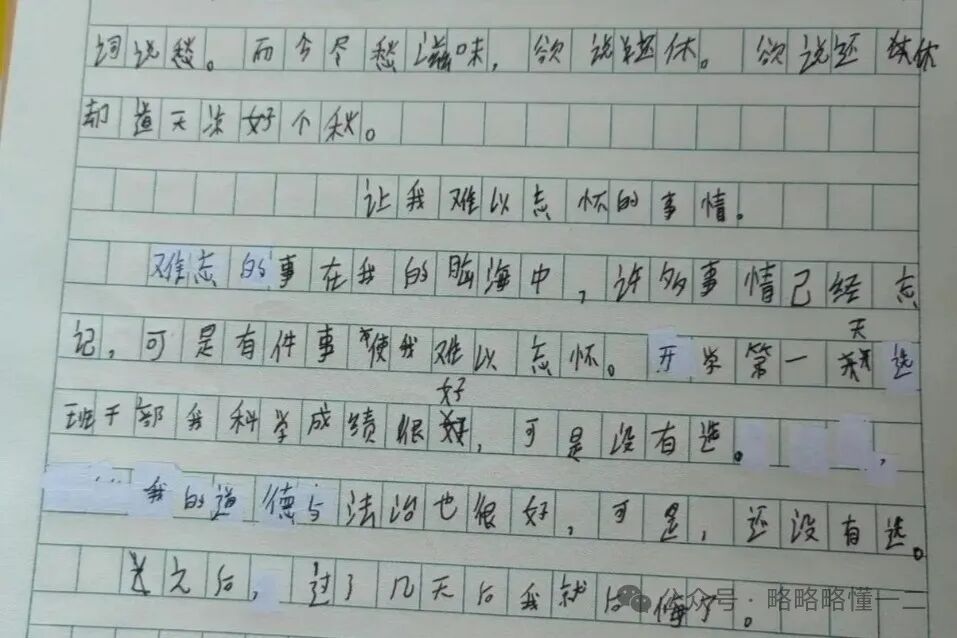 词说愁。而今尽愁滋味，欲说还休。欲说还休
却道天凉好个秋。
让我难以忘怀的事情。
难忘的事在我的脑海中，许多事情已经忘
记，可是有件事使我难以忘怀。开学第一天选
班干部我科学成绩很好，可是没有选。，
我的道德与法治也很好，可是，还没有选。
之后，过了几天后我就后悔了。
公众号·略略略懂一二